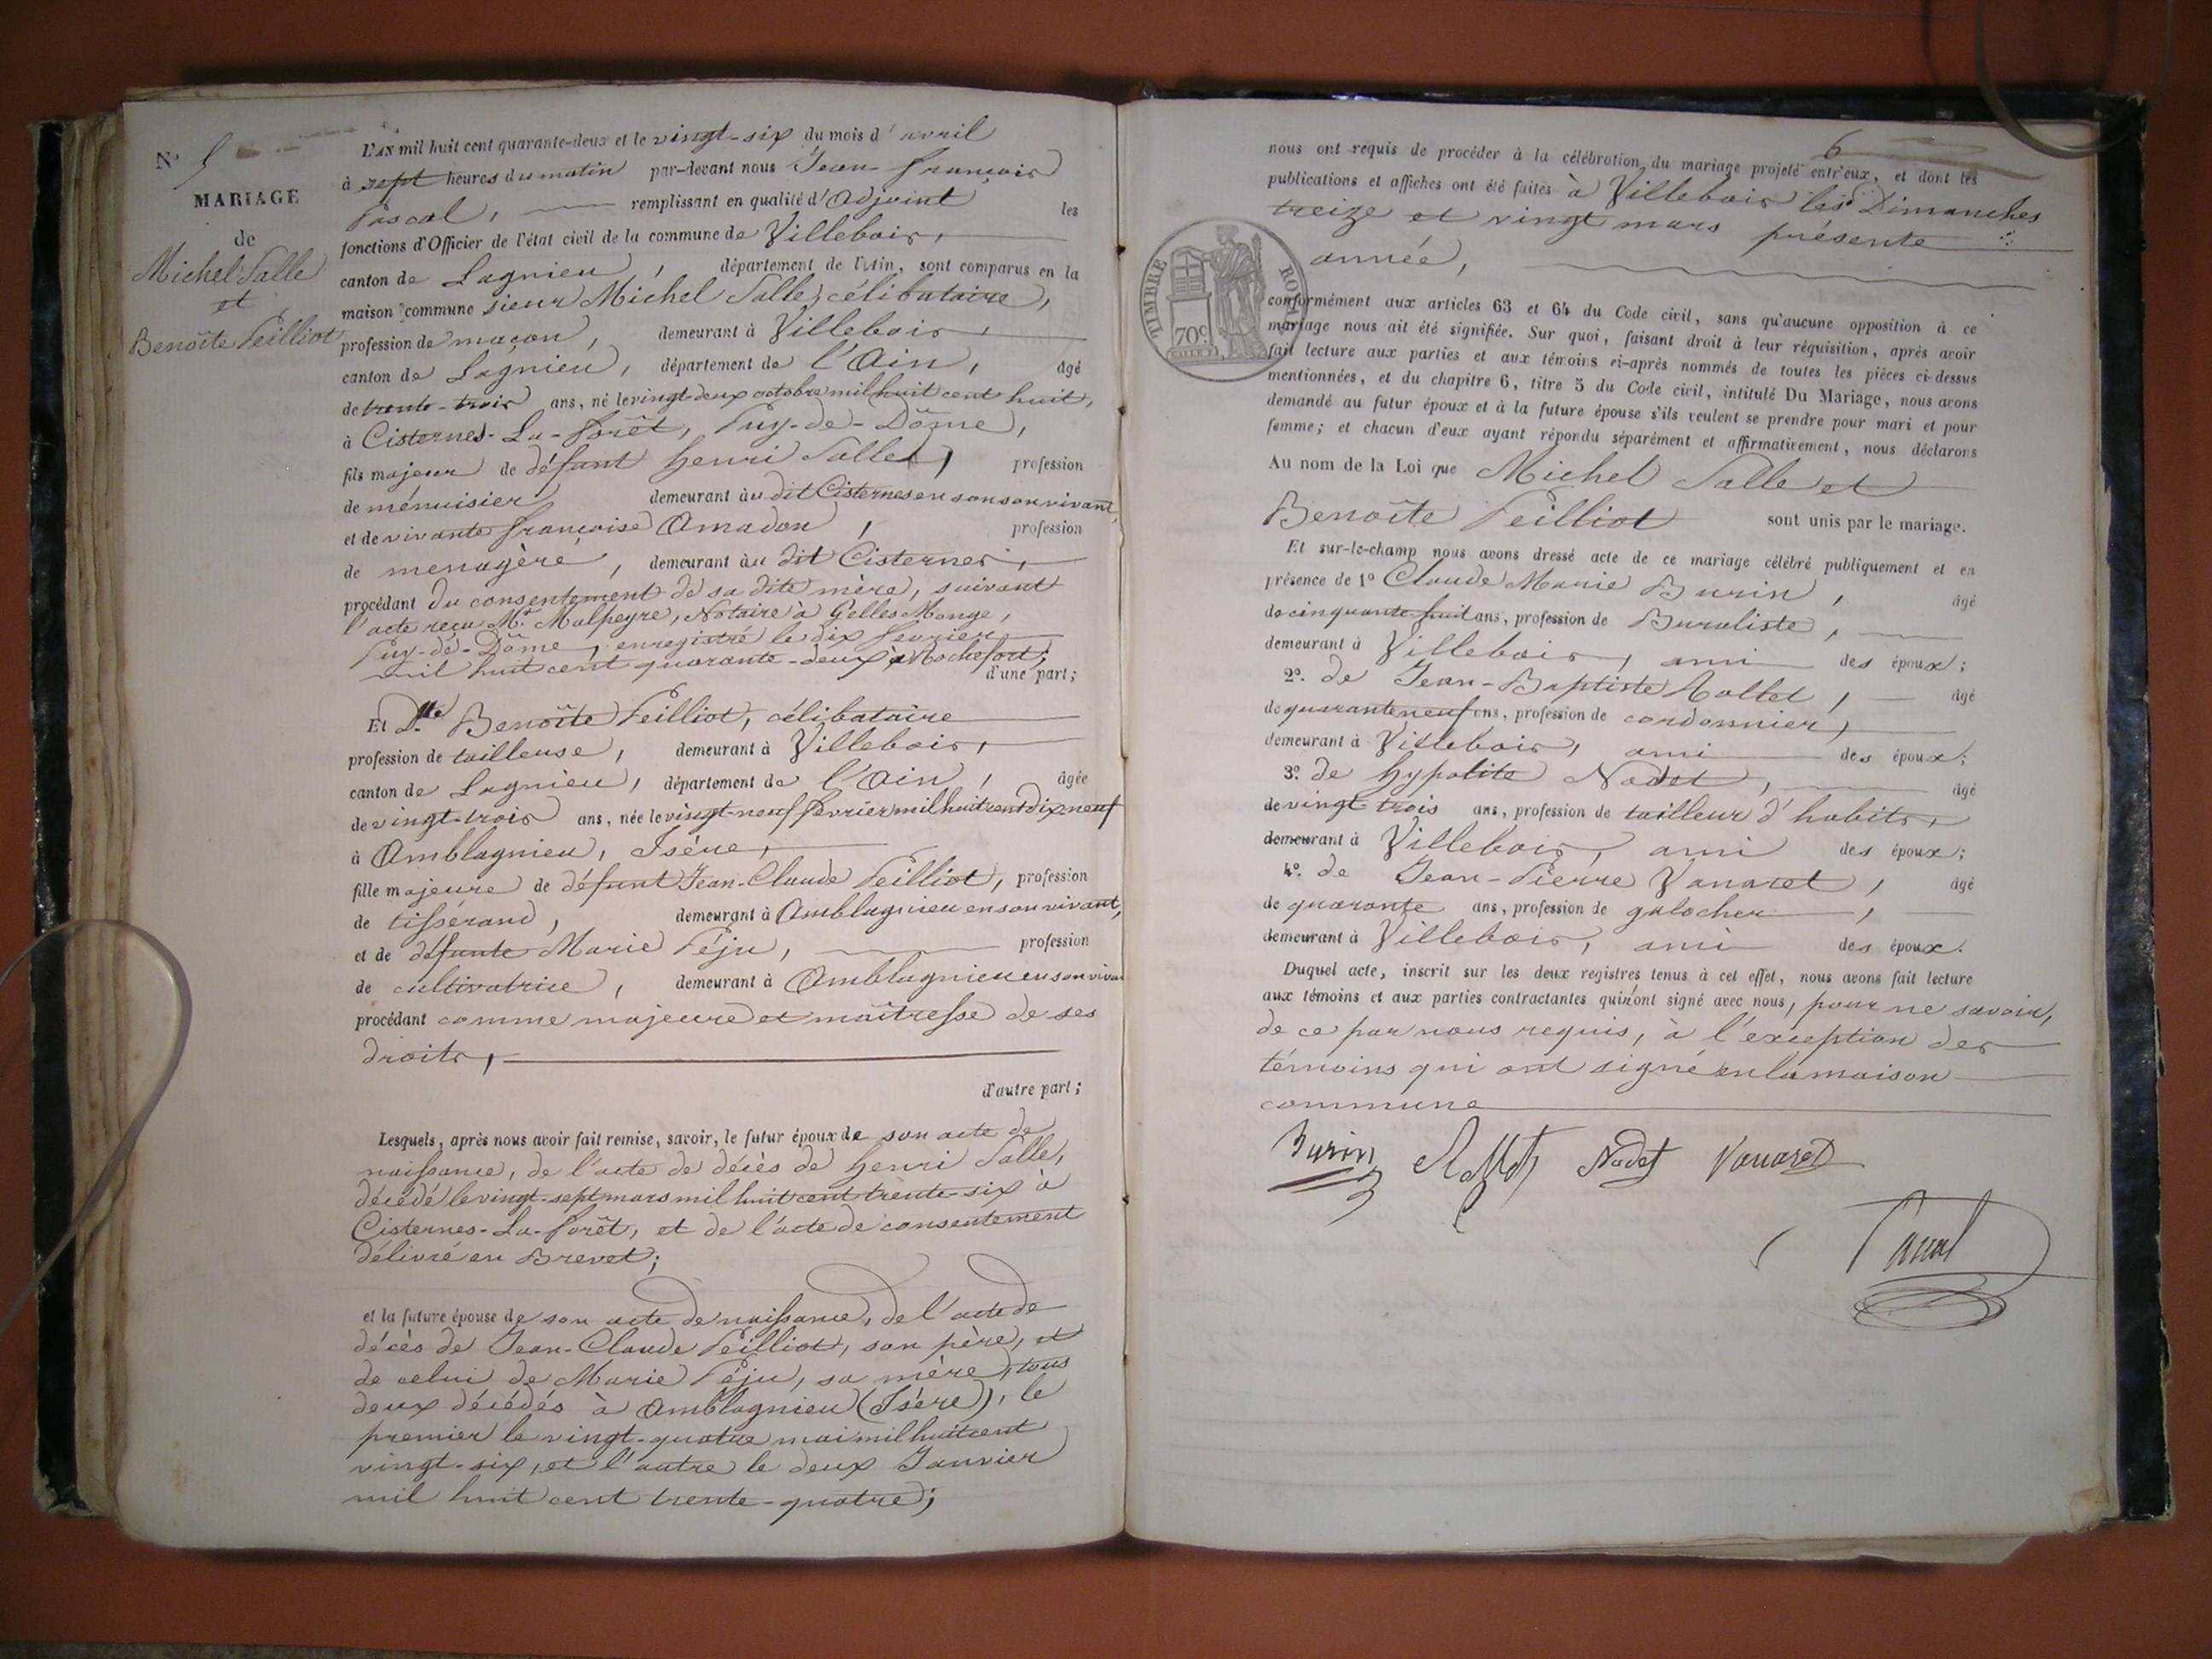 N° 5
MARIAGE
de
Michel Salle
et
Benoîte Peilliot
L'AN mil huit cent quarante-deux et le vingt-six du mois d'avril
à sept heures du matin par-devant nous Jean-françois
Pascal, remplissant en qualité d'Adjoint les
fonctions d'Officier de l'état civil de la commune de Villebois,
canton de Lagnieu, département de l'Ain, sont comparus en la
maison commune sieur Michel Salle, célibataire,
profession de maçon, demeurant à Villebois,
canton de Lagnieu, département de l'Ain, âgé
de trente-trois ans, né le vingt-deux octobre mil huit cent huit,
à Cisternes-La-forêt, Puy-de-Dôme,
fils majeur de défunt henri Salle, profession
de ménuisier demeurant àu dit Cisternes en son son vivant,
et de vivante françoise Amadon, profession
de menagère, demeurant àu dit Cisternes,
procédant du consentement de sa dite mère, suivant
l'acte reçu Mr. Malpeyre, Notaire à Gelles Monge,
Puy-de-Dôme, enregistré le dix fevrier
mil huit cent quarante-deux à Rochefort;
d'une part;
Et Dlle Benoîte Peilliot, célibataire
profession de tailleuse, demeurant à Villebois,
canton de Lagnieu, département de l'Ain, âgée
de vingt-trois ans, née le vingt-neuf fevrier mil huit cent dix-neuf
à Amblagnieu, Isère,
fille majeure de défunt Jean-Claude Peilliot, profession
de tissérand, demeurant à Amblagnieu en son vivant,
et de défunte Marie Péju, profession
de cultivatrice, demeurant à Amblagnieu en son vivan
procédant comme majeure et maîtresse de ses
droits,
d'autre part;
Lesquels, après nous avoir fait remise, savoir, le futur époux de son acte de
naissance, de l'acte de décès de henri Salle,
décédé le vingt-sept mars mil huit cent trente-six à
Cisternes-La-forêt, et de l'acte de consentement
délivré en Brevet;
et la future épouse de son acte de naissance, de l'acte de
décès de Jean-Claude Peilliot, son père, et
de celui de Marie Péju, sa mère, tous
deux décédés à Amblagnieu (Isére), le
premier le vingt-quatre mai mil huit cent
vingt-six, et l'autre le deux Janvier
mil huit cent trente-quatre;
6
nous ont requis de procéder à la célébration du mariage projeté entr'eux, et dont les
publications et affiches ont été faites à Villebois les Dimanches
treize et vingt mars présente
année,
TIMBRE ROYAL
70c
conformément aux articles 63 et 64 du Code civil, sans qu'aucune opposition à ce
mariage nous ait été signifiée. Sur quoi, faisant droit à leur réquisition, après avoir
fait lecture aux parties et aux témoins ci-après nommés de toutes les pièces ci-dessus
mentionnées, et du chapitre 6, titre 5 du Code civil, intitulé Du Mariage, nous avons
demandé au futur époux et à la future épouse s'ils veulent se prendre pour mari et pour
femme; et chacun d'eux ayant répondu séparément et affirmativement, nous déclarons
Au nom de la Loi que Michel Salle et
Benoîte Peilliot sont unis par le mariage.
Et sur-le-champ nous avons dressé acte de ce mariage célébré publiquement et en
présence de 1° Claude Marie Burin, âgé
de cinquante-huit ans, profession de Buraliste,
demeurant à Villebois, ami des époux;
2°. de Jean-Baptiste âgé
de quarante neuf ans, profession de cordonnier,
demeurant à Villebois, ami des époux;
3°. de hypolite Nodet, âgé
de vingt trois ans, profession de tailleur d'habits,
demeurant à Villebois, ami des époux;
4°. de Jean-Pierre Vanaret, âgé
de quarante ans, profession de galocher,
demeurant à Villebois, ami des époux.
Duquel acte, inscrit sur les deux registres tenus à cet effet, nous avons fait lecture
aux témoins et aux parties contractantes qui n'ont signé avec nous, pour ne savoir,
de ce par nous requis, à l'exception des
témoins qui ont signé en la maison
commune
Burin Nodet Vanaret
Pascal